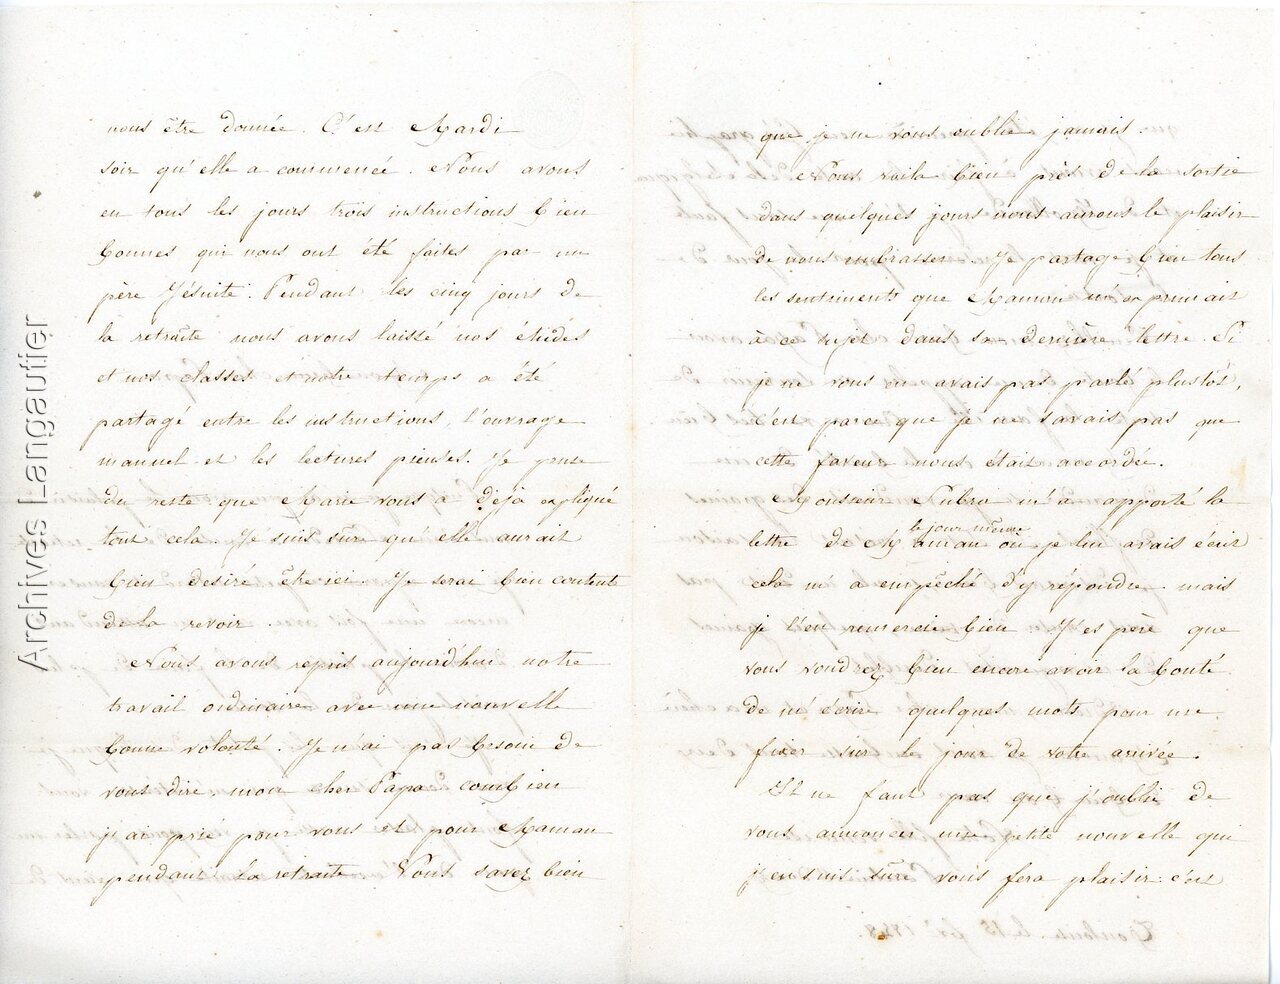 nous être donnée. C'est Mardi
soir qu'elle a commencé. Nous avons
eu tous les jours trois instructions bien
bonnes qui nous ont été faites par un
père Jésuite. Pendant les cinq jours de
la retraite nous avons laissé nos études
et nos classes et notre temps a été
partagé entre les instructions, l'ouvrage
manuel et les lectures pieuses. Je pense
du reste que Marie vous a déjà expliqué
tout cela. Je suis sûre qu'elle aurait
bien desiré être ici. Je serai bien contente
de la revoir.
Nous avons repris aujourd'hui notre
travail ordinaire avec une nouvelle
bonne volonté. Je n'ai pas besoin de
vous dire, mon cher Papa combien
j'ai prié pour vous et pour Maman
pendant la retraite. Vous savez bien
que je ne vous oublie jamais.
Nous voila bien près de la sortie
dans quelques jours nous aurons le plaisir
de nous embrasser. Je partage bien tous
les sentiments que Maman m'exprimait
à ce sujet dans sa dernière lettre. Si
je ne vous en avais pas parlé plustôt,
c'est parce que je ne savais pas que
cette faveur nous était accordée.
Monsieur Nubra m'a apporté la
lettre de Maman le jour même où je lui avais écrit
cela m'a empêché d'y répondre mais
je l'en remercie bien. J'espère que
vous voudrez bien encore avoir la bonté
de m'écrire quelques mots pour me
fixer sur le jour de votre arrivée.
Il ne faut pas que j'oublie de
vous annoncer une petite nouvelle qui
j'en suis sûre vous fera plaisir: c'est
Archives Langautier